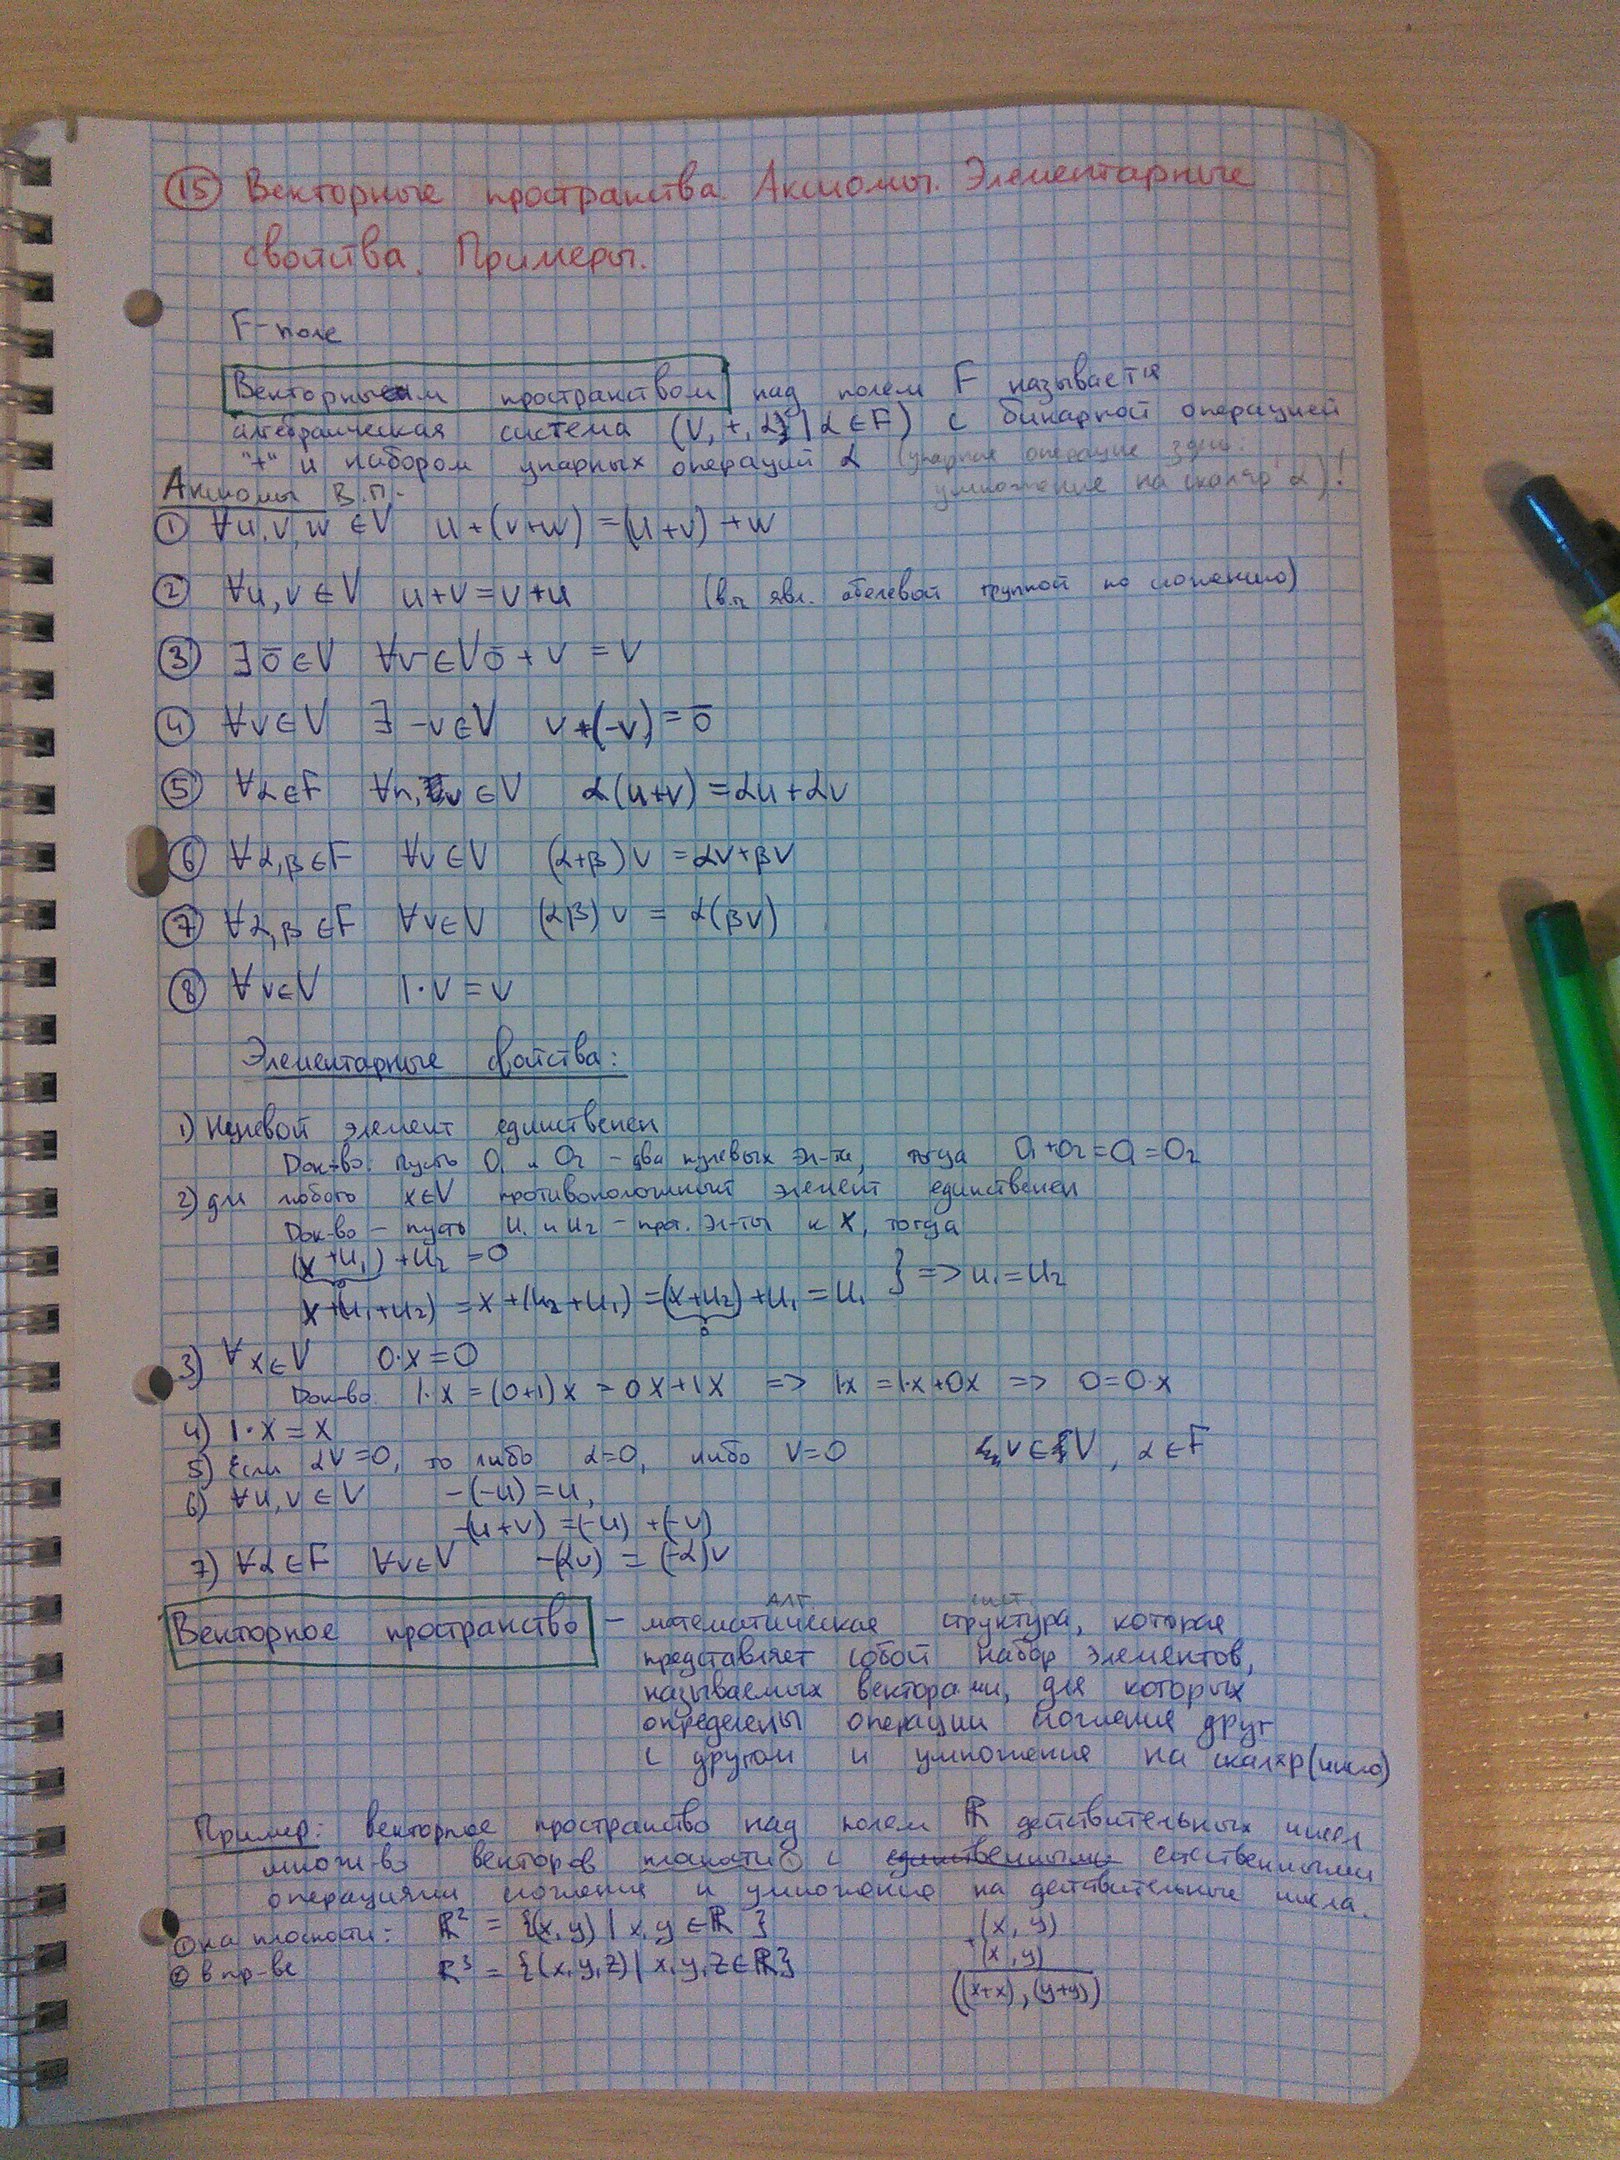 15 Векторные пространства. Аксиомы. Элементарные
свойства. Примеры.
F-поле
Векторным пространством над полем F называется
алгебраическая система (V, +, α} | α ∈ F) с бинарной операцией
"+" и набором унарных операций α (унарные операции здесь
умножение на скаляр α)!
Аксиомы В.П.
① ∀u, v, w ∈ V u + (v+w) = (u+v) + w
② ∀u, v ∈ V u+v = v+u (в.п. явл. абелевой группой по сложению)
③ ∃ō ∈ V ∀v ∈ V ō + v = v
④ ∀v ∈ V ∃ -v ∈ V v + (-v) = ō
⑤ ∀α ∈ F ∀u, v ∈ V α(u+v) = αu + αv
⑥ ∀α, β ∈ F ∀v ∈ V (α+β)v = αv + βv
⑦ ∀α, β ∈ F ∀v ∈ V (αβ)v = α(βv)
⑧ ∀v ∈ V 1·v = v
Элементарные свойства:
1) Нулевой элемент единственен
Док-во: Пусть O₁ и O₂ - два нулевых эл-та, тогда O₁+O₂ = O₁ = O₂
2) для любого x ∈ V противоположный элемент единственен
Док-во - пусть u₁ и u₂ - прот. эл-ты к x, тогда
(x + u₁) + u₂ = 0
0
x + (u₁ + u₂) = x + (u₂ + u₁) = (x + u₂) + u₁ = u₁ } => u₁ = u₂
0
3) ∀x ∈ V 0·x = 0
Док-во 1·x = (0+1)x = 0x + 1x => 1x = 1·x + 0x => 0 = 0·x
4) 1·x = x
5) Если αv = 0, то либо α = 0, либо v = 0 v ∈ V, α ∈ F
6) ∀u, v ∈ V -(-u) = u,
-(u+v) = (-u) + (-v)
7) ∀α ∈ F ∀v ∈ V -(αv) = (-α)v
алг. сист.
Векторное пространство - математическая структура, которая
представляет собой набор элементов,
называемых векторами, для которых
определены операции сложения друг
с другом и умножения на скаляр (число)
Пример: векторное пространство над полем ℝ действительных чисел
множ-во векторов плоскости с единственными естественными
операциями сложения и умножения на действительные числа.
① на плоскости: ℝ² = {(x, y) | x, y ∈ ℝ } (x, y)
(x, y)
② в пр-ве ℝ³ = {(x, y, z) | x, y, z ∈ ℝ}
((x+x), (y+y))